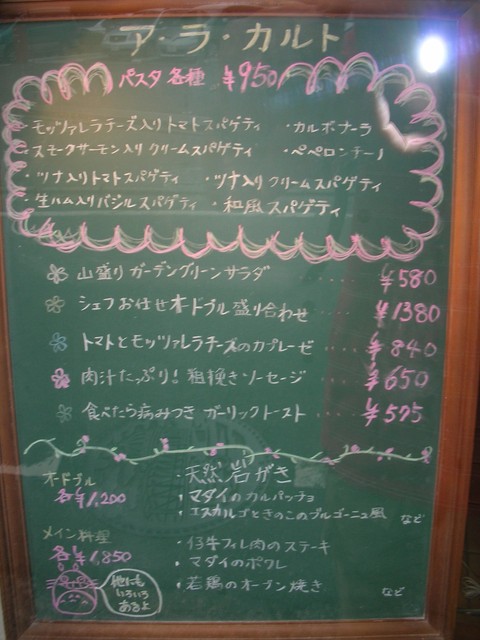 ア・ラ・カルト
パスタ各種 ¥950
・モッツァレラチーズ入りトマトスパゲティ ・カルボナーラ
・スモークサーモン入りクリームスパゲティ ・ペペロンチーノ
・ツナ入りトマトスパゲティ ・ツナ入りクリームスパゲティ
・生ハム入りバジルスパゲティ ・和風スパゲティ
山盛りガーデングリーンサラダ ・・・・ ¥580
シェフお任せオードブル盛り合わせ ¥1380
トマトとモッツァレラチーズのカプレーゼ ・・・・ ¥840
肉汁たっぷり!粗挽きソーセージ ・・・・ ¥650
食べたら病みつきガーリックトースト ・・・・ ¥575
オードブル
各¥1,200
・天然岩がき
・マダイのカルパッチョ
・エスカルゴときのこのブルゴーニュ風 など
メイン料理
各¥1,850
・仔牛フィレ肉のステーキ
・マダイのポワレ
・若鶏のオーブン焼き など
他にも
いろいろ
あるよ